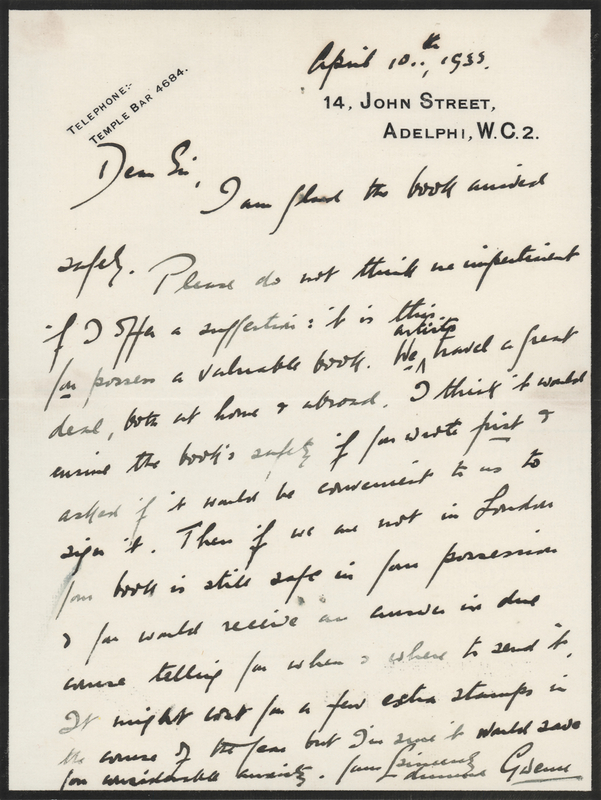 TELEPHONE:-
TEMPLE BAR 4684.
April 10th, 1933.
14, JOHN STREET,
ADELPHI, W.C.2.
Dear Sir,
I am glad the book arrived
safely. Please do not think me impertinent
if I offer a suggestion: it is this.
you possess a valuable book. We artists travel a great
deal, both at home & abroad. I think it would
ensure the book's safety if you wrote first &
asked if it would be convenient to us to
sign it. Then if we are not in London
your book is still safe in your possession
& you would receive an answer in due
course telling you when & where to send it.
It might cost you a few extra stamps in
the course of the year but I'm sure it would save
you considerable anxiety. Yours sincerely